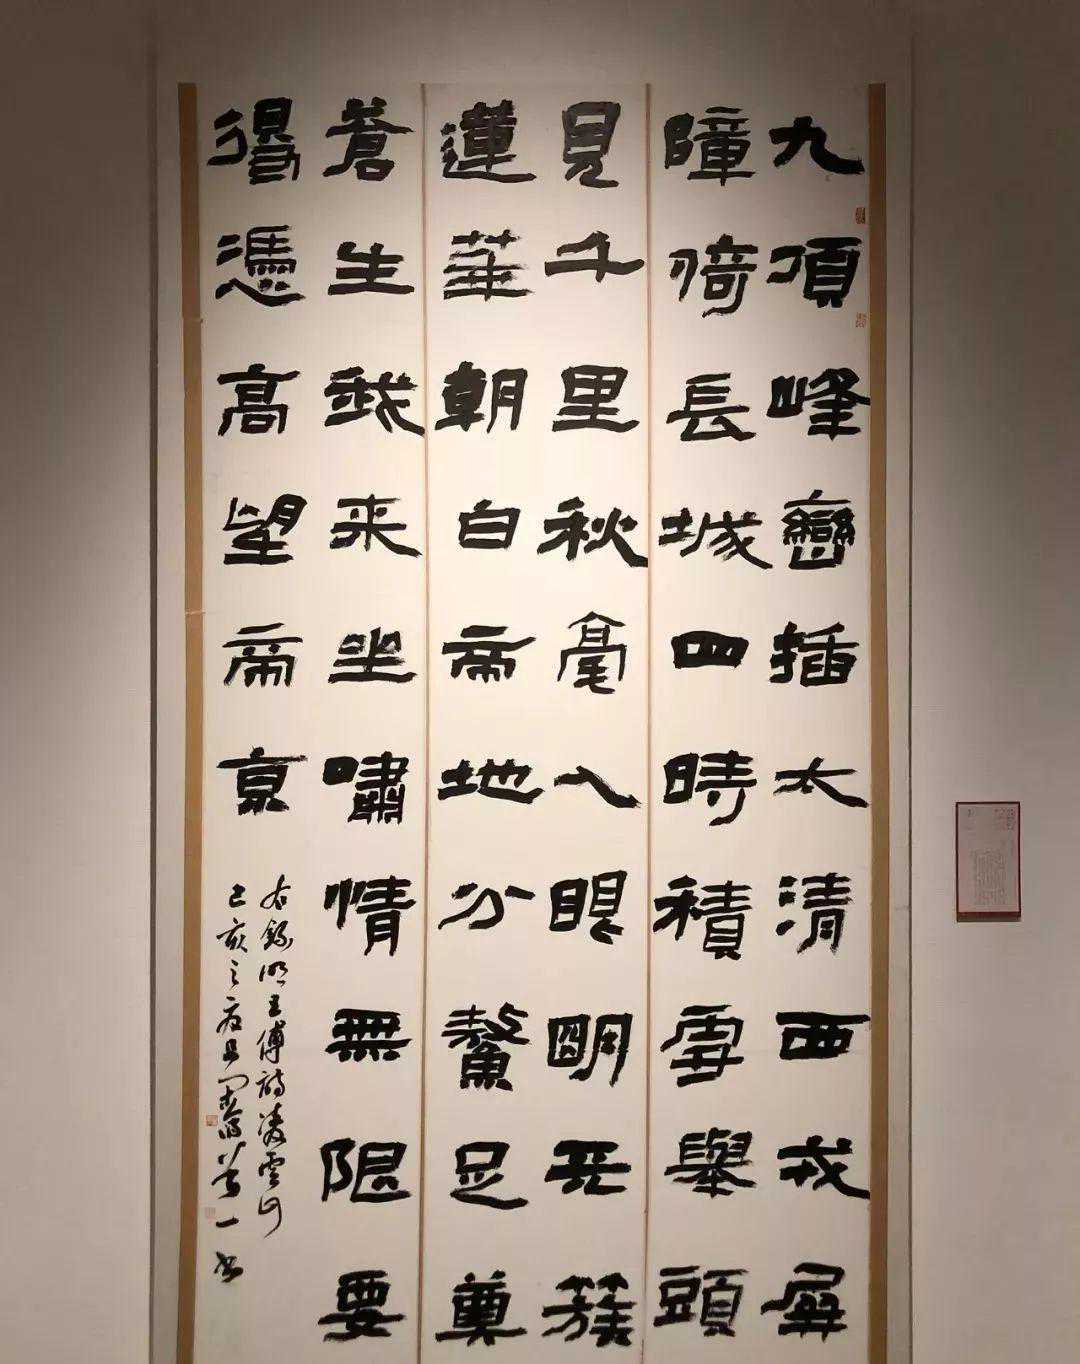 九頂峰巒插太清西戎屏
障倚長城四時積雪舉頭
見千里秋毫入眼明天簇
蓮華朝白帝地分鰲足奠
蒼生我来坐嘯情無限要
得憑高望帝京
右錄明王傅詩凌雲
己亥之一書